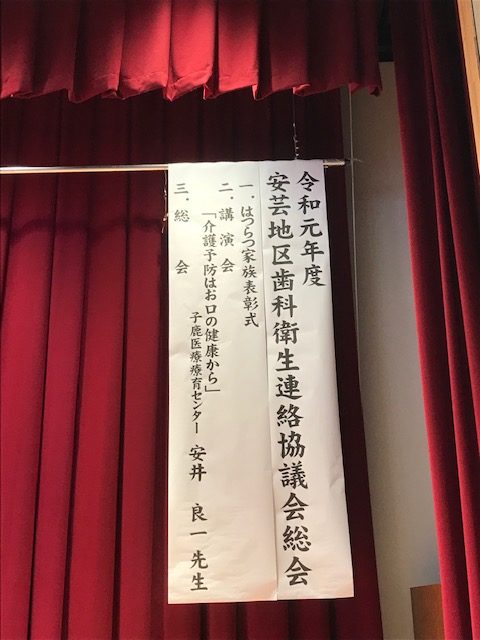 令和元年度
安芸地区歯科衛生連絡協議会総会
一．はつらつ家族表彰式
二．講演会
「介護予防はお口の健康から」
子鹿医療療育センター 安井 良一先生
三．総会